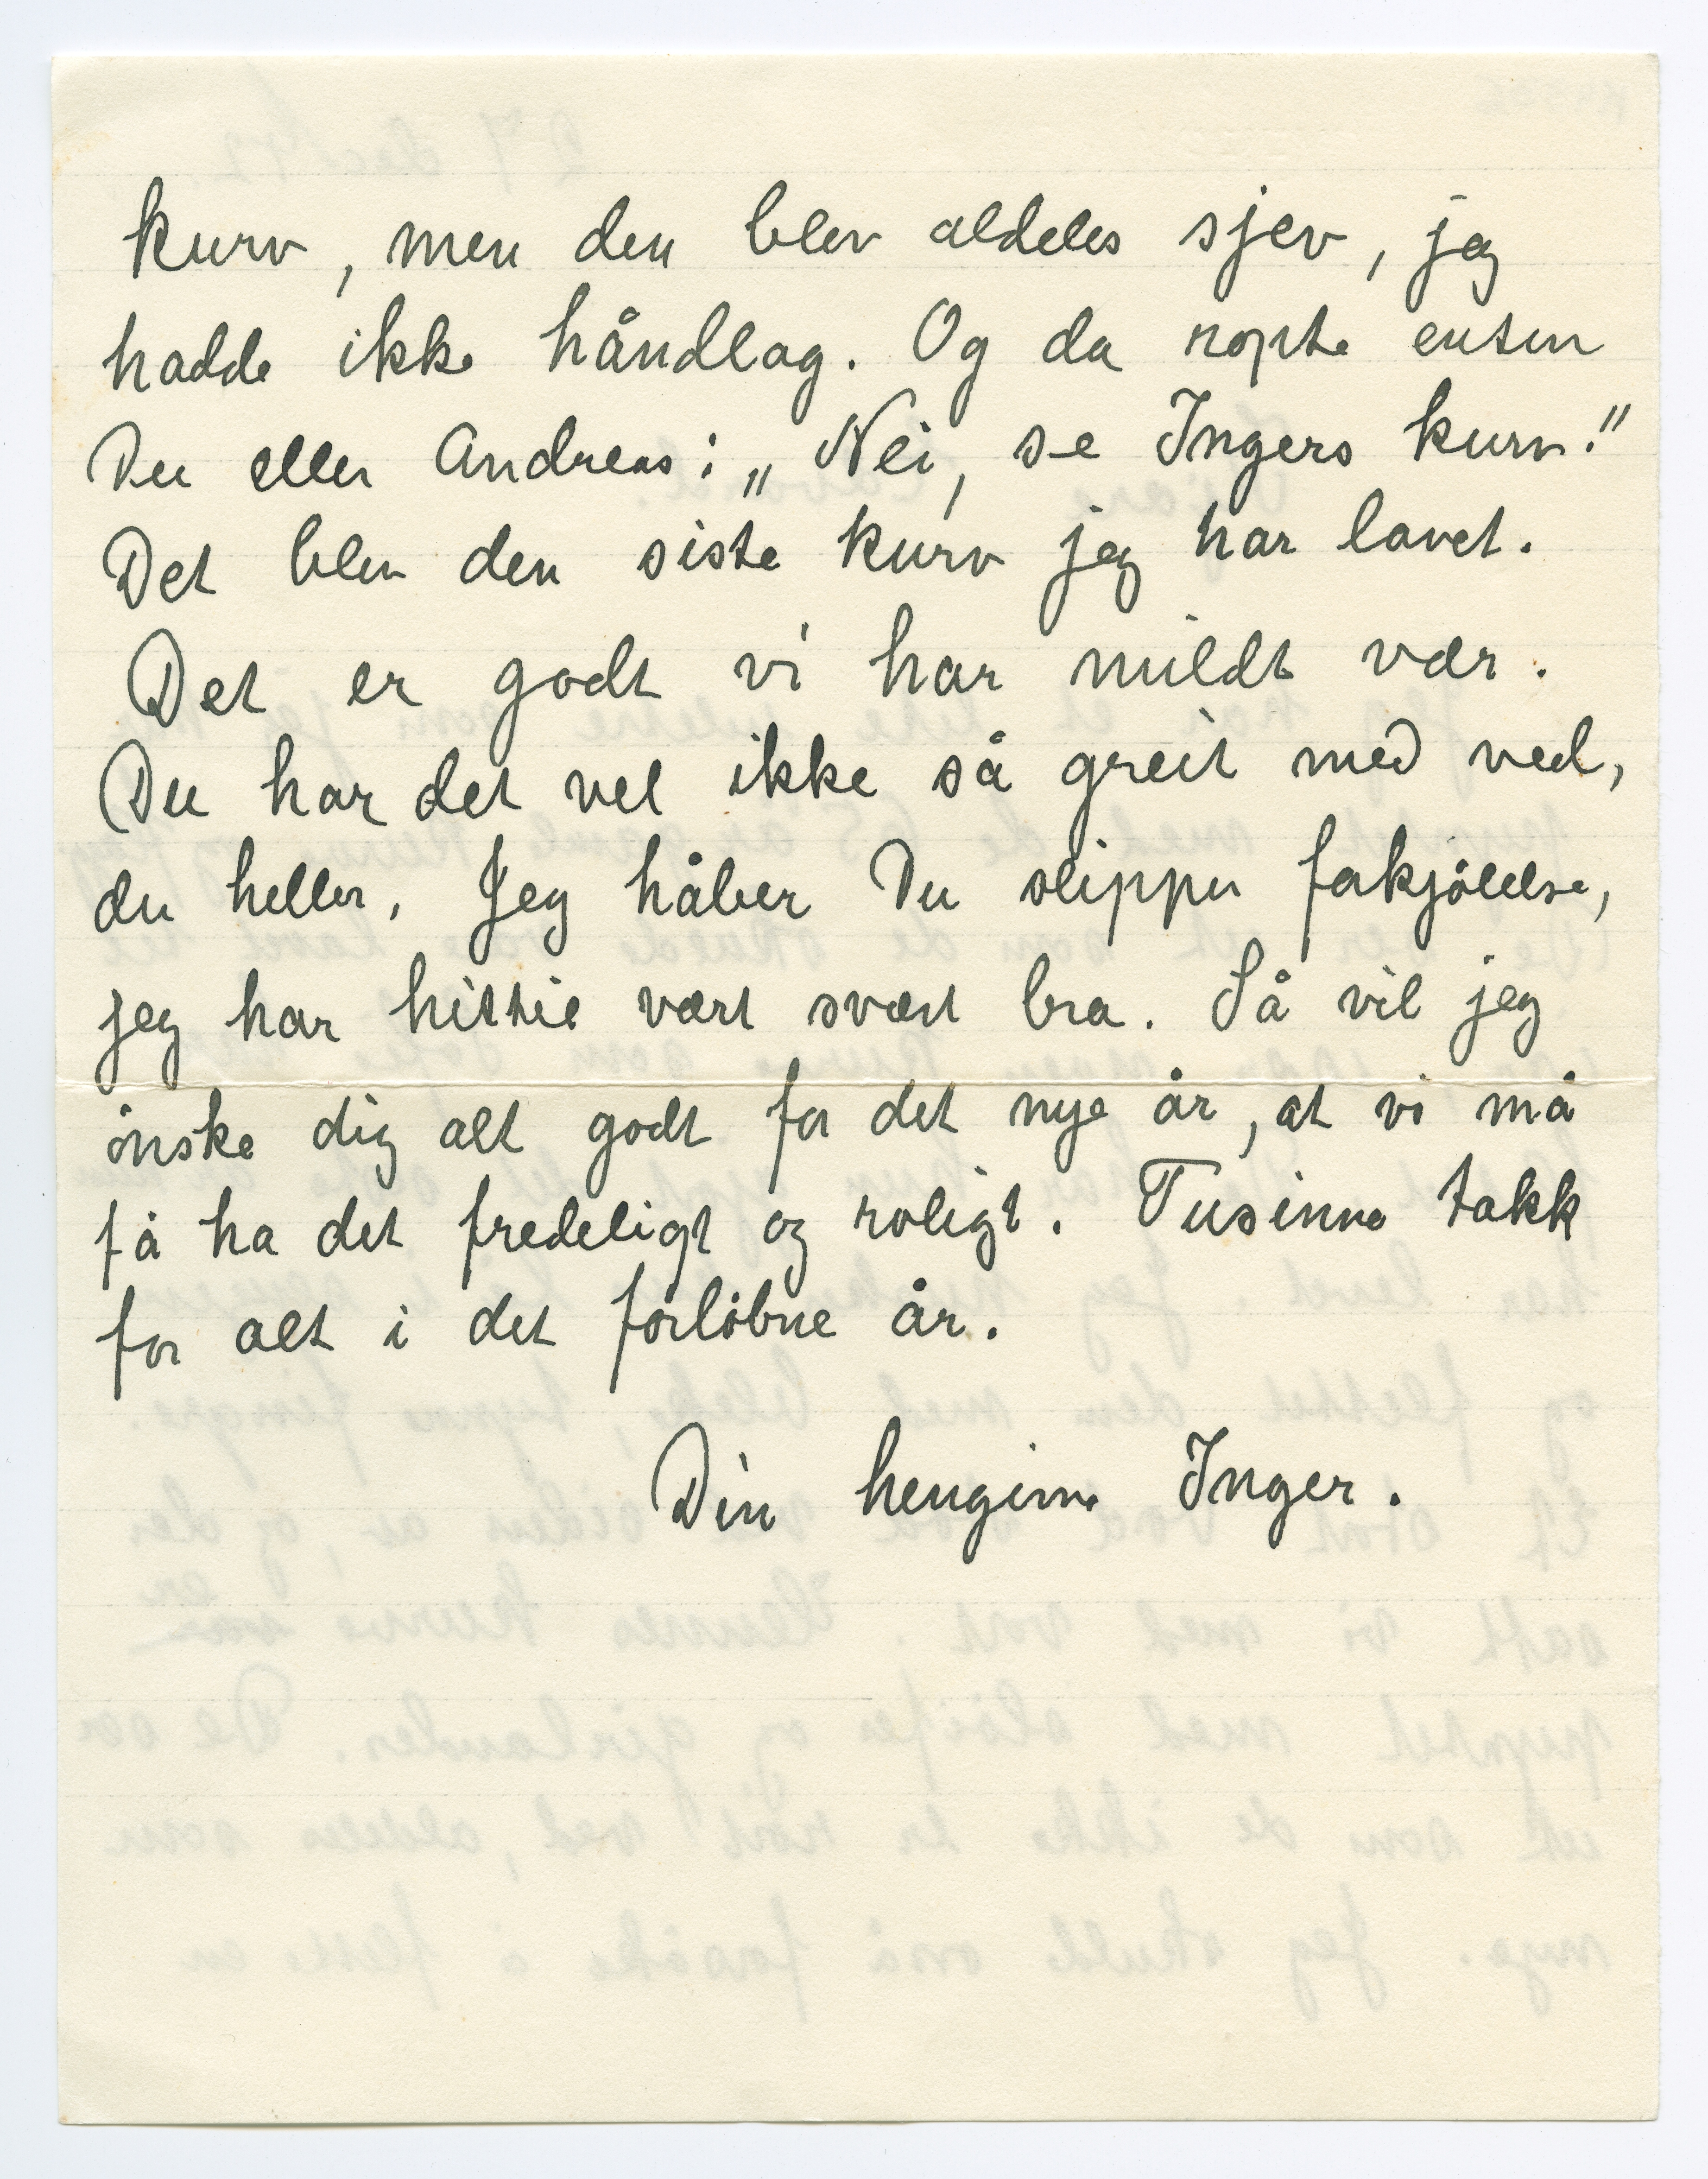 kurv, men den blev aldeles sjev, jeg
hadde ikke håndlag. Og da ropte enten
Du eller Andreas: „Nei, se Ingers kurv."
Det blev den siste kurv jeg har lavet.
Det er godt vi har mildt vær.
Du har det vel ikke så greit med ved,
du heller. Jeg håber Du slipper forkjölelse,
jeg har hittil vært svært bra. Så vil jeg
önske dig alt godt for det nye år, at vi må
få ha det fredeligt og roligt. Tusinne takk
for alt i det forlöbne år.
Din hengivne Inger.